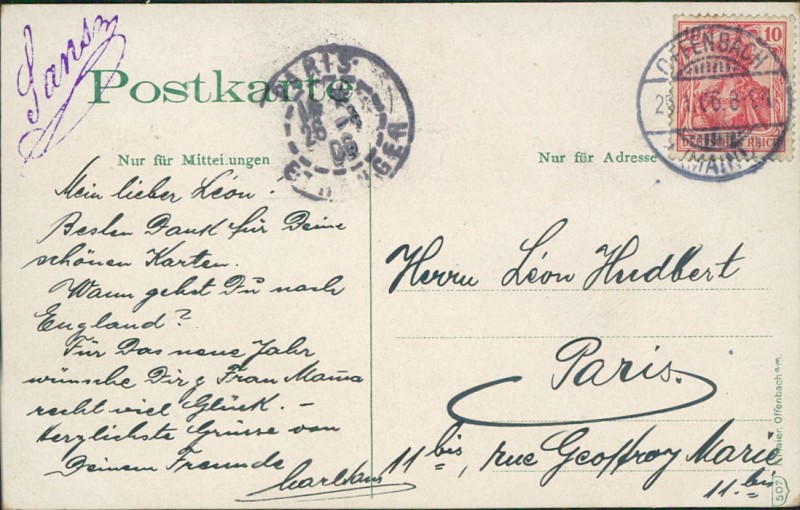 Postkarte
Nur für Mitteilungen
Nur für Adresse
Mein lieber Léon!
Besten Dank für Deine
schönen Karten.
Wann gehst Du nach
England?
Für Das neue Jahr
wünsche Dir & Frau Mama
recht viel Glück. –
Herzlichste Grüsse von
Deinem Freunde
Herrn Léon Hudbert
Paris.
11 bis, rue Geoffroy Marie
11. bis
PARIS
ETRANGER
10
OFFENBACH
(MAIN)
507
Offenbach a/m.